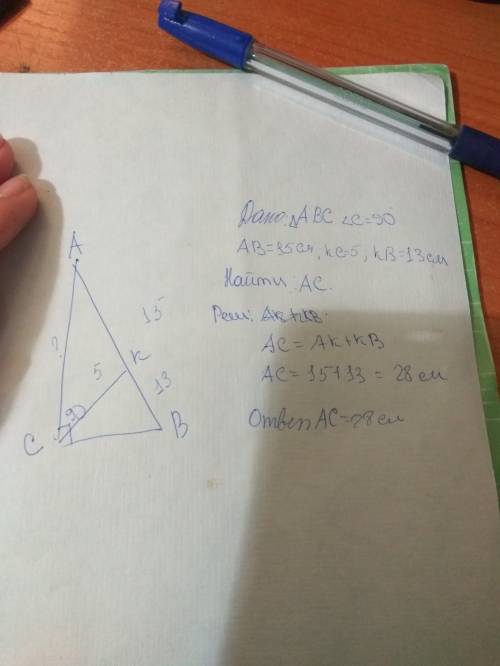 A
15
?
5
K
13
90
C
B
Дано: △ABC ∠C=90
AB=15см, KC=5, KB=13см
Найти: AC.
Реш: AK+KB
AC = AK+KB
AC = 15+13 = 28 см
Ответ AC=28см